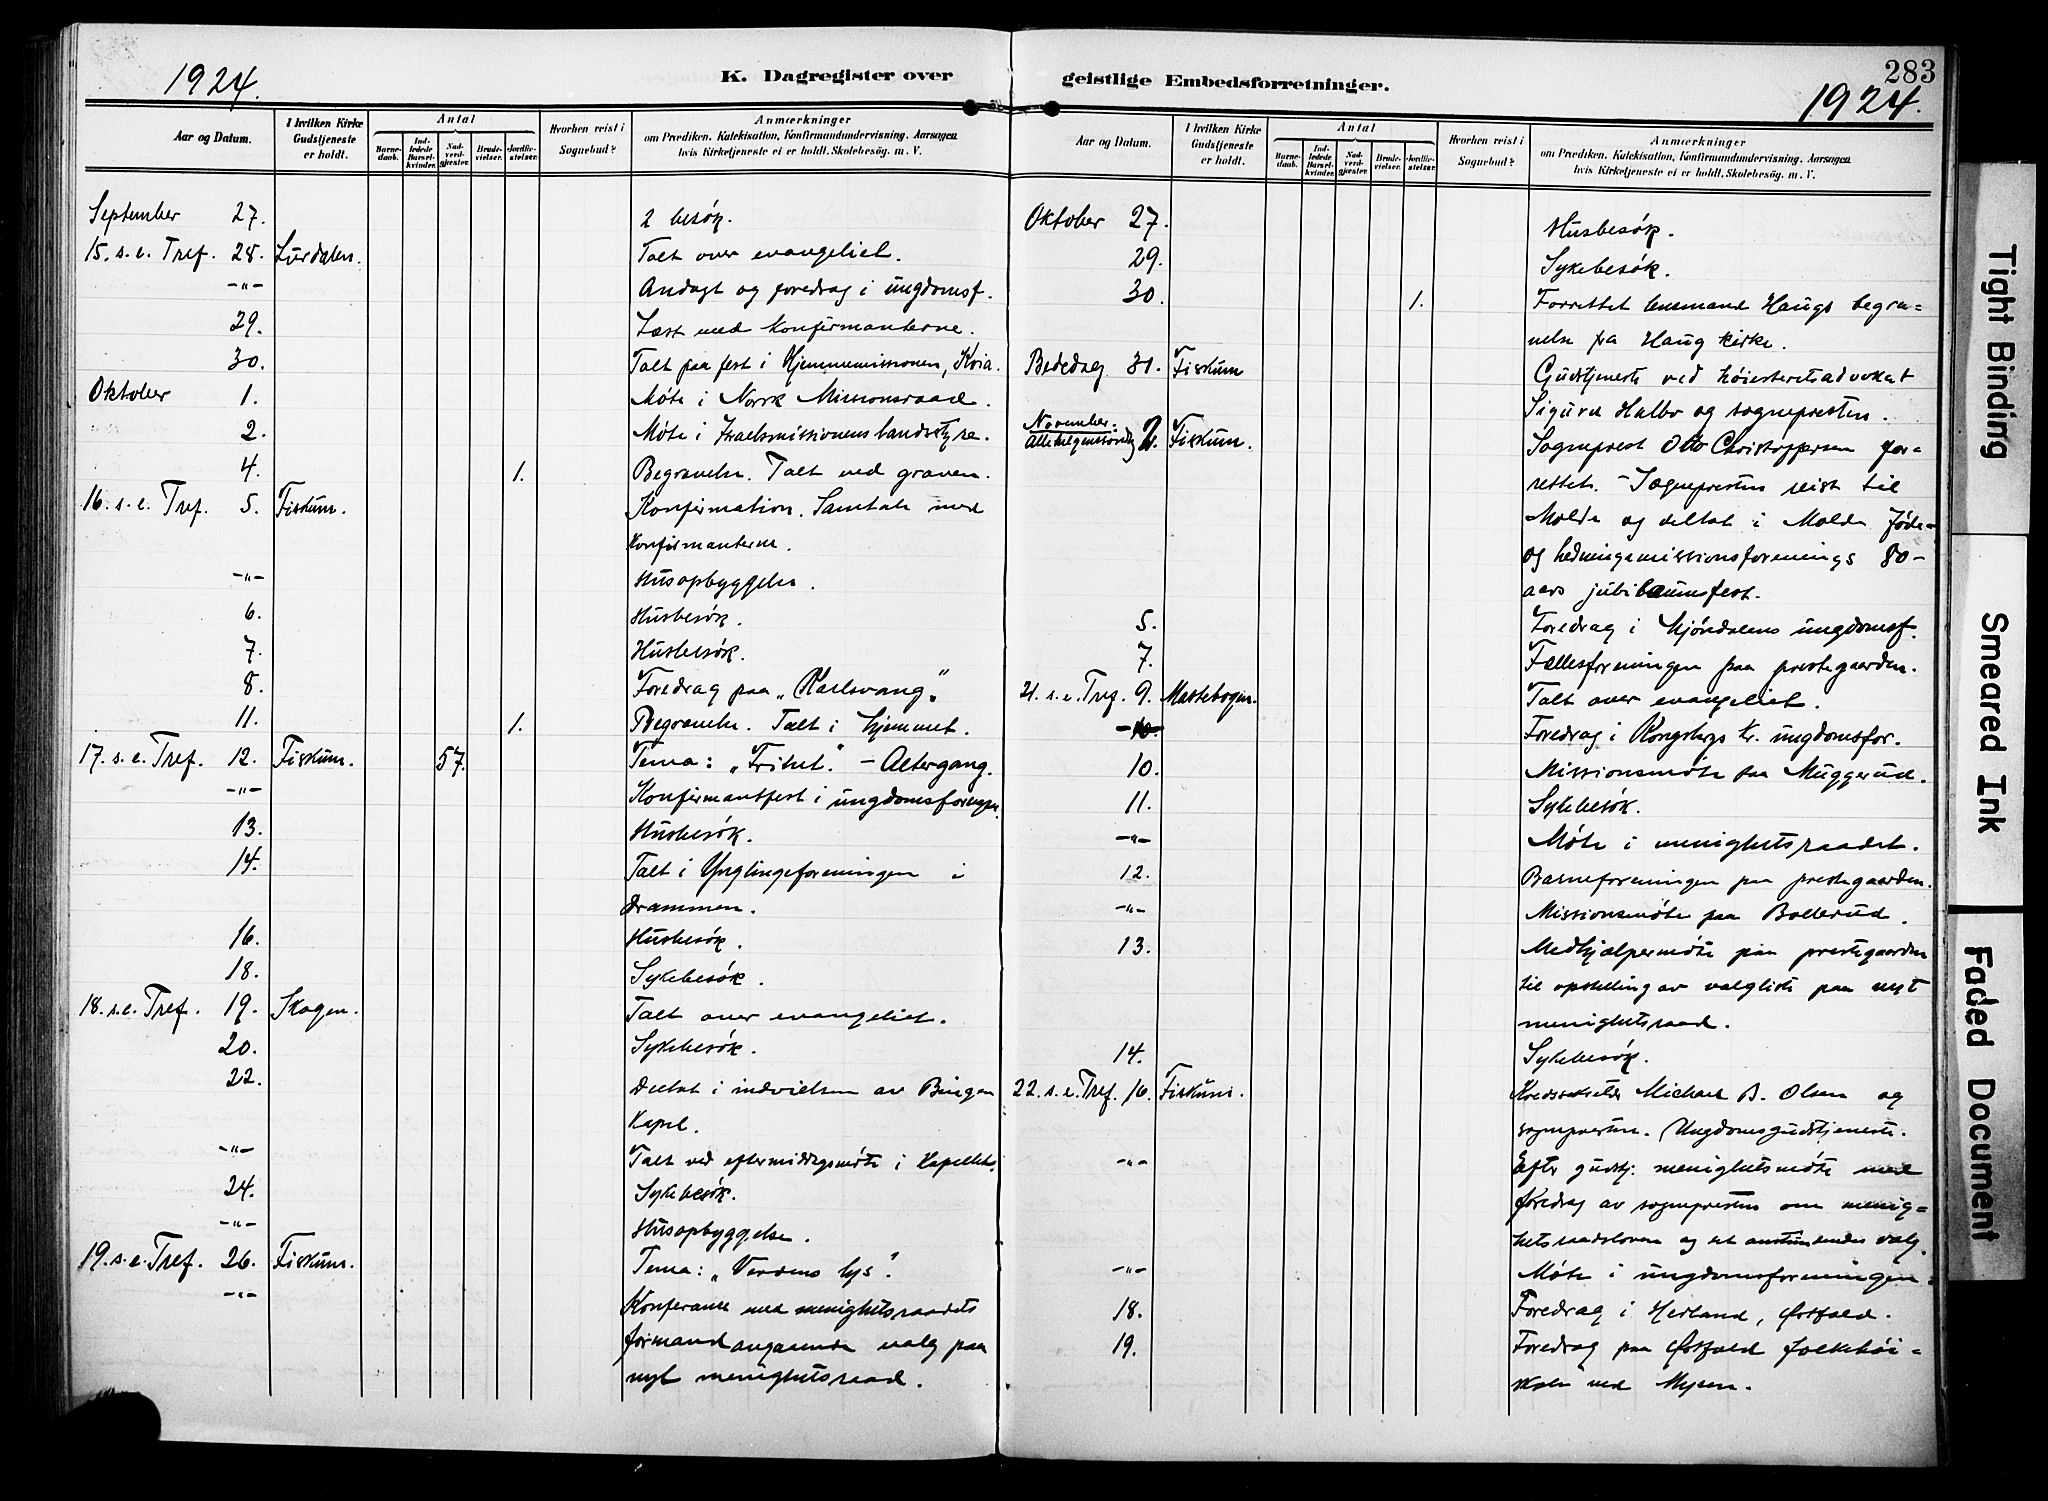 1924.
K. Dagregister over
Aar og Datum.
I hvilken Kirke Gudstjeneste er holdt.
Antal
Barne-daab.
Ind-ledede Barsel-kvinder.
Nad-verd-gjester.
Brude-vielser.
Jordfæ-stelser.
Hvorhen reist i Sognebud?
Anmærkninger
om Prædiken, Katekisation, Konfirmandundervisning, Aarsagen
hvis Kirketjeneste ei er holdt, Skolebesøg. m. V.
September 27. 2 besøk.
15. s. e. Tref. 28. Lurdalen. Talt over evangeliet.
-"- Andagt og foredrag i ungdomsf.
29. Læst med konfirmanterne.
30. Talt paa fest i Hjemmemissionen, Kria.
Oktober 1. Møte i Norsk Missionsraad.
2. Møte i Israelsmissionens landsstyre.
4. 1. Begravelse. Talt ved graven.
16. s. e. Tref. 5. Fiskum. Konfirmation. Samtale med
Konfirmanterne.
-"- Husopbyggelse.
6. Husbesøk.
7. Husbesøk.
8. Foredrag paa „Karlsvang".
11. 1. Begravelse. Talt i hjemmet.
17. s. e. Tref. 12. Fiskum. 57. Tema: „Frihet." - Altergang.
-"- Konfirmantfest i ungdomsforegen.
13. Husbesøk.
14. Talt i Ynglingeforeningen i
Drammen.
16. Husbesøk.
18. Sykebesøk.
18. s. e. Tref. 19. Skogen. Talt over evangeliet.
20. Sykebesøk.
22. Deltat i indvielsen av Bingen
Kapel.
-"- Talt ved eftermiddagsmøte i Kapellet.
24. Sykebesøk.
-"- Husopbyggelse.
19. s. e. Tref. 26. Fiskum. Tema: „Verdens lys".
-"- Konferanse med menighetsraadets
formand angaaende valg paa
nyt menighetsraad.
geistlige Embedsforretninger.
283
1924.
Aar og Datum.
I hvilken Kirke Gudstjeneste er holdt.
Antal
Barne-daab.
Ind-ledede Barsel-kvinder.
Nad-verd-gjester.
Brude-vielser.
Jordfæ-stelser.
Hvorhen reist i Sognebud?
Anmærkninger
om Prædiken, Katekisation, Konfirmandundervisning, Aarsagen
hvis Kirketjeneste ei er holdt, Skolebesøg. m. V.
Oktober 27. Husbesøk.
29. Sykebesøk.
30. 1. Forrettet lensmand Haugs begra-
velse fra Haug kirke.
Bededag 31. Fiskum Gudstjeneste ved høiesteretsadvokat
Sigurd Halbo og sognepresten.
November.
Allehelgenssøndag 2. Fiskum. Sogneprest Otto Christoffersen for-
rettet. - Sognepresten reist til
Molde og deltat i Molde jøde-
og hedningemissionsforenings 80-
aars jubilæumsfest.
5. Foredrag i Mjøndalens ungdomsf.
7. Fællesforeningen paa prestegaarden.
21. s. e. Tref. 9. Mastebogen. Talt over evangeliet.
-10- Foredrag i Kongsbergs kr. ungdomsfor.
10. Missionsmøte paa Muggerud.
11. Sykebesøk.
-"- Møte i menighetsraadet.
12. Barneforeningen paa prestegaarden.
-"- Missionsmøte paa Bollerud.
13. Medhjælpermøte paa prestegaarden
til opstilling av valgliste paa nyt
menighetsraad.
14. Sykebesøk.
22. s. e. Tref. 16. Fiskum. Kredssekretær Michael B. Olsen og
sognepresten. Ungdomsgudstjeneste.
-"- Efter gudstj: menighetsmøte med
foredrag av sognepresten om menig-
hetsraadsloven og det anstundende valg.
-"- Møte i ungdomsforeningen.
18. Foredrag i Herland, Østfold.
19. Foredrag paa Østfold folkehøi-
skole ved Mysen.
Tight Binding
Smeared Ink
Faded Document